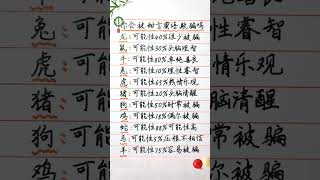 你会被甜言蜜语欺骗吗
龙:可能性40%很少被骗
鼠:可能性30%头脑理智
牛:可能性80%单纯善良
兔:可能性10%理性睿智
虎:可能性65%热情乐观
猪:可能性20%头脑清醒
狗:可能性50%时常被骗
鸡:可能性18%偶尔被骗
蛇:可能性88%可能性高
马:可能性5%压根不相信
羊:可能性75%容易被骗